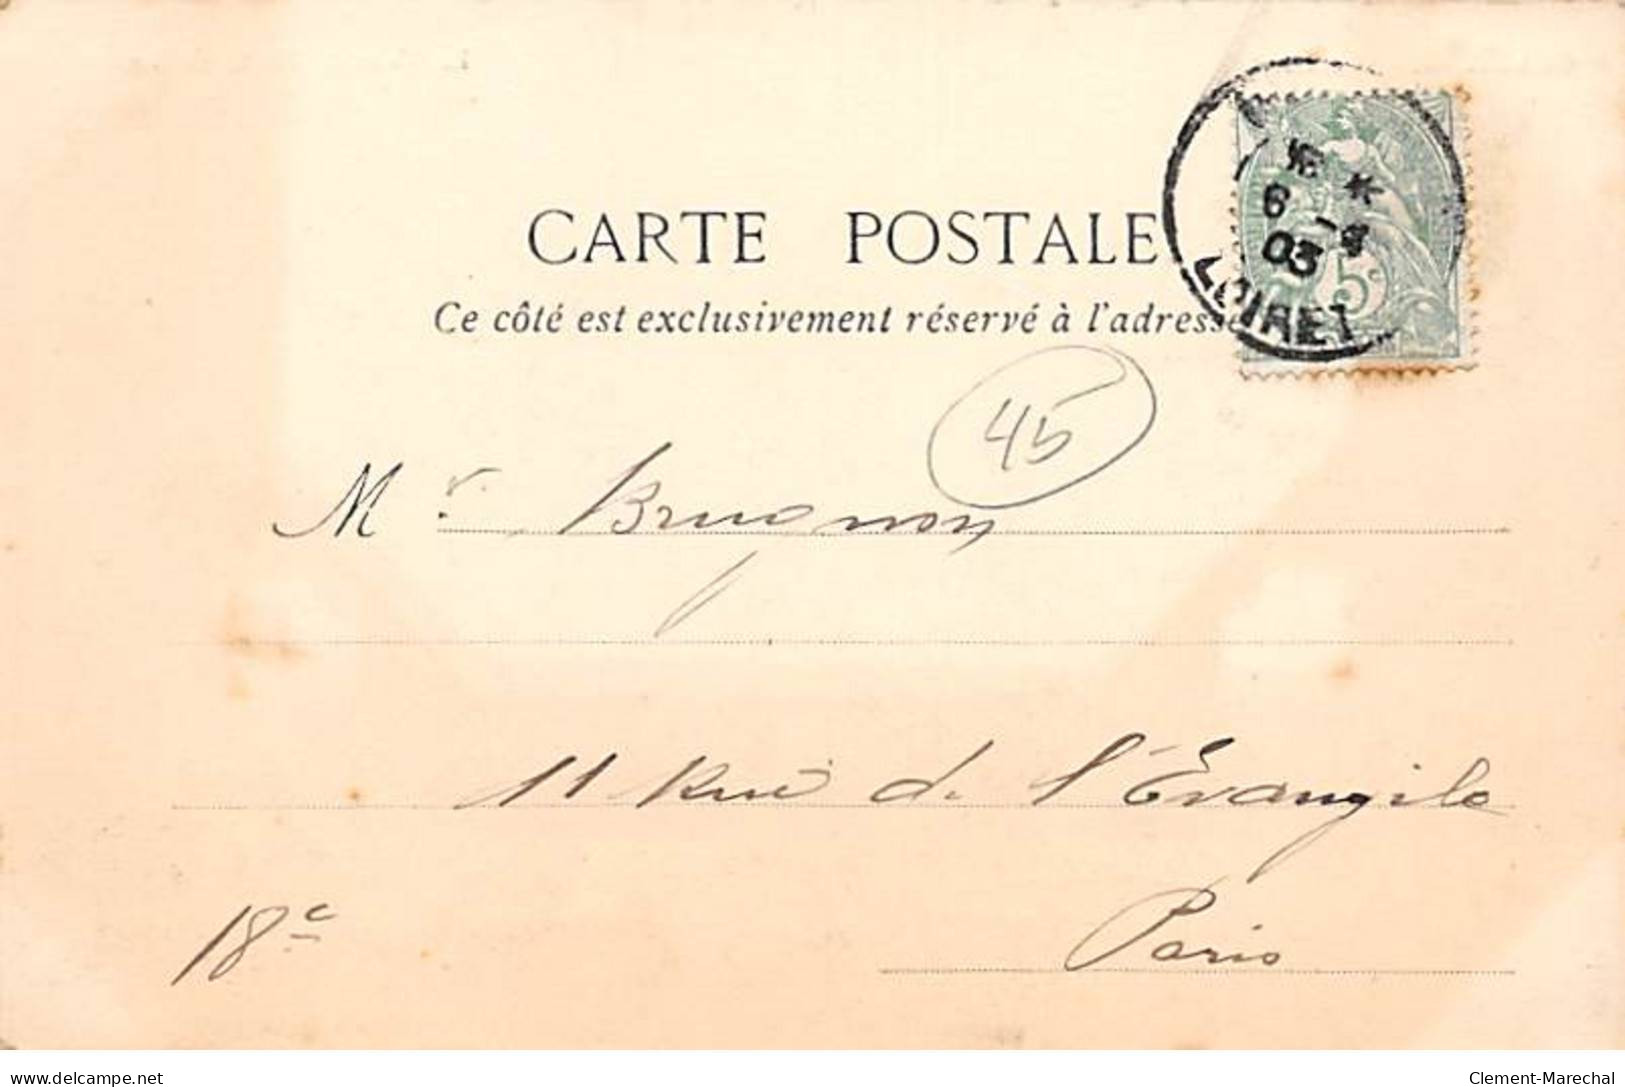 CARTE POSTALE
Ce côté est exclusivement réservé à l'adresse
6 -4
03
LOIRET
5c
45
Mr. Brugnon
11 Rue de l'Évangile
18e Paris
delcampe.net
Clement-Marechal